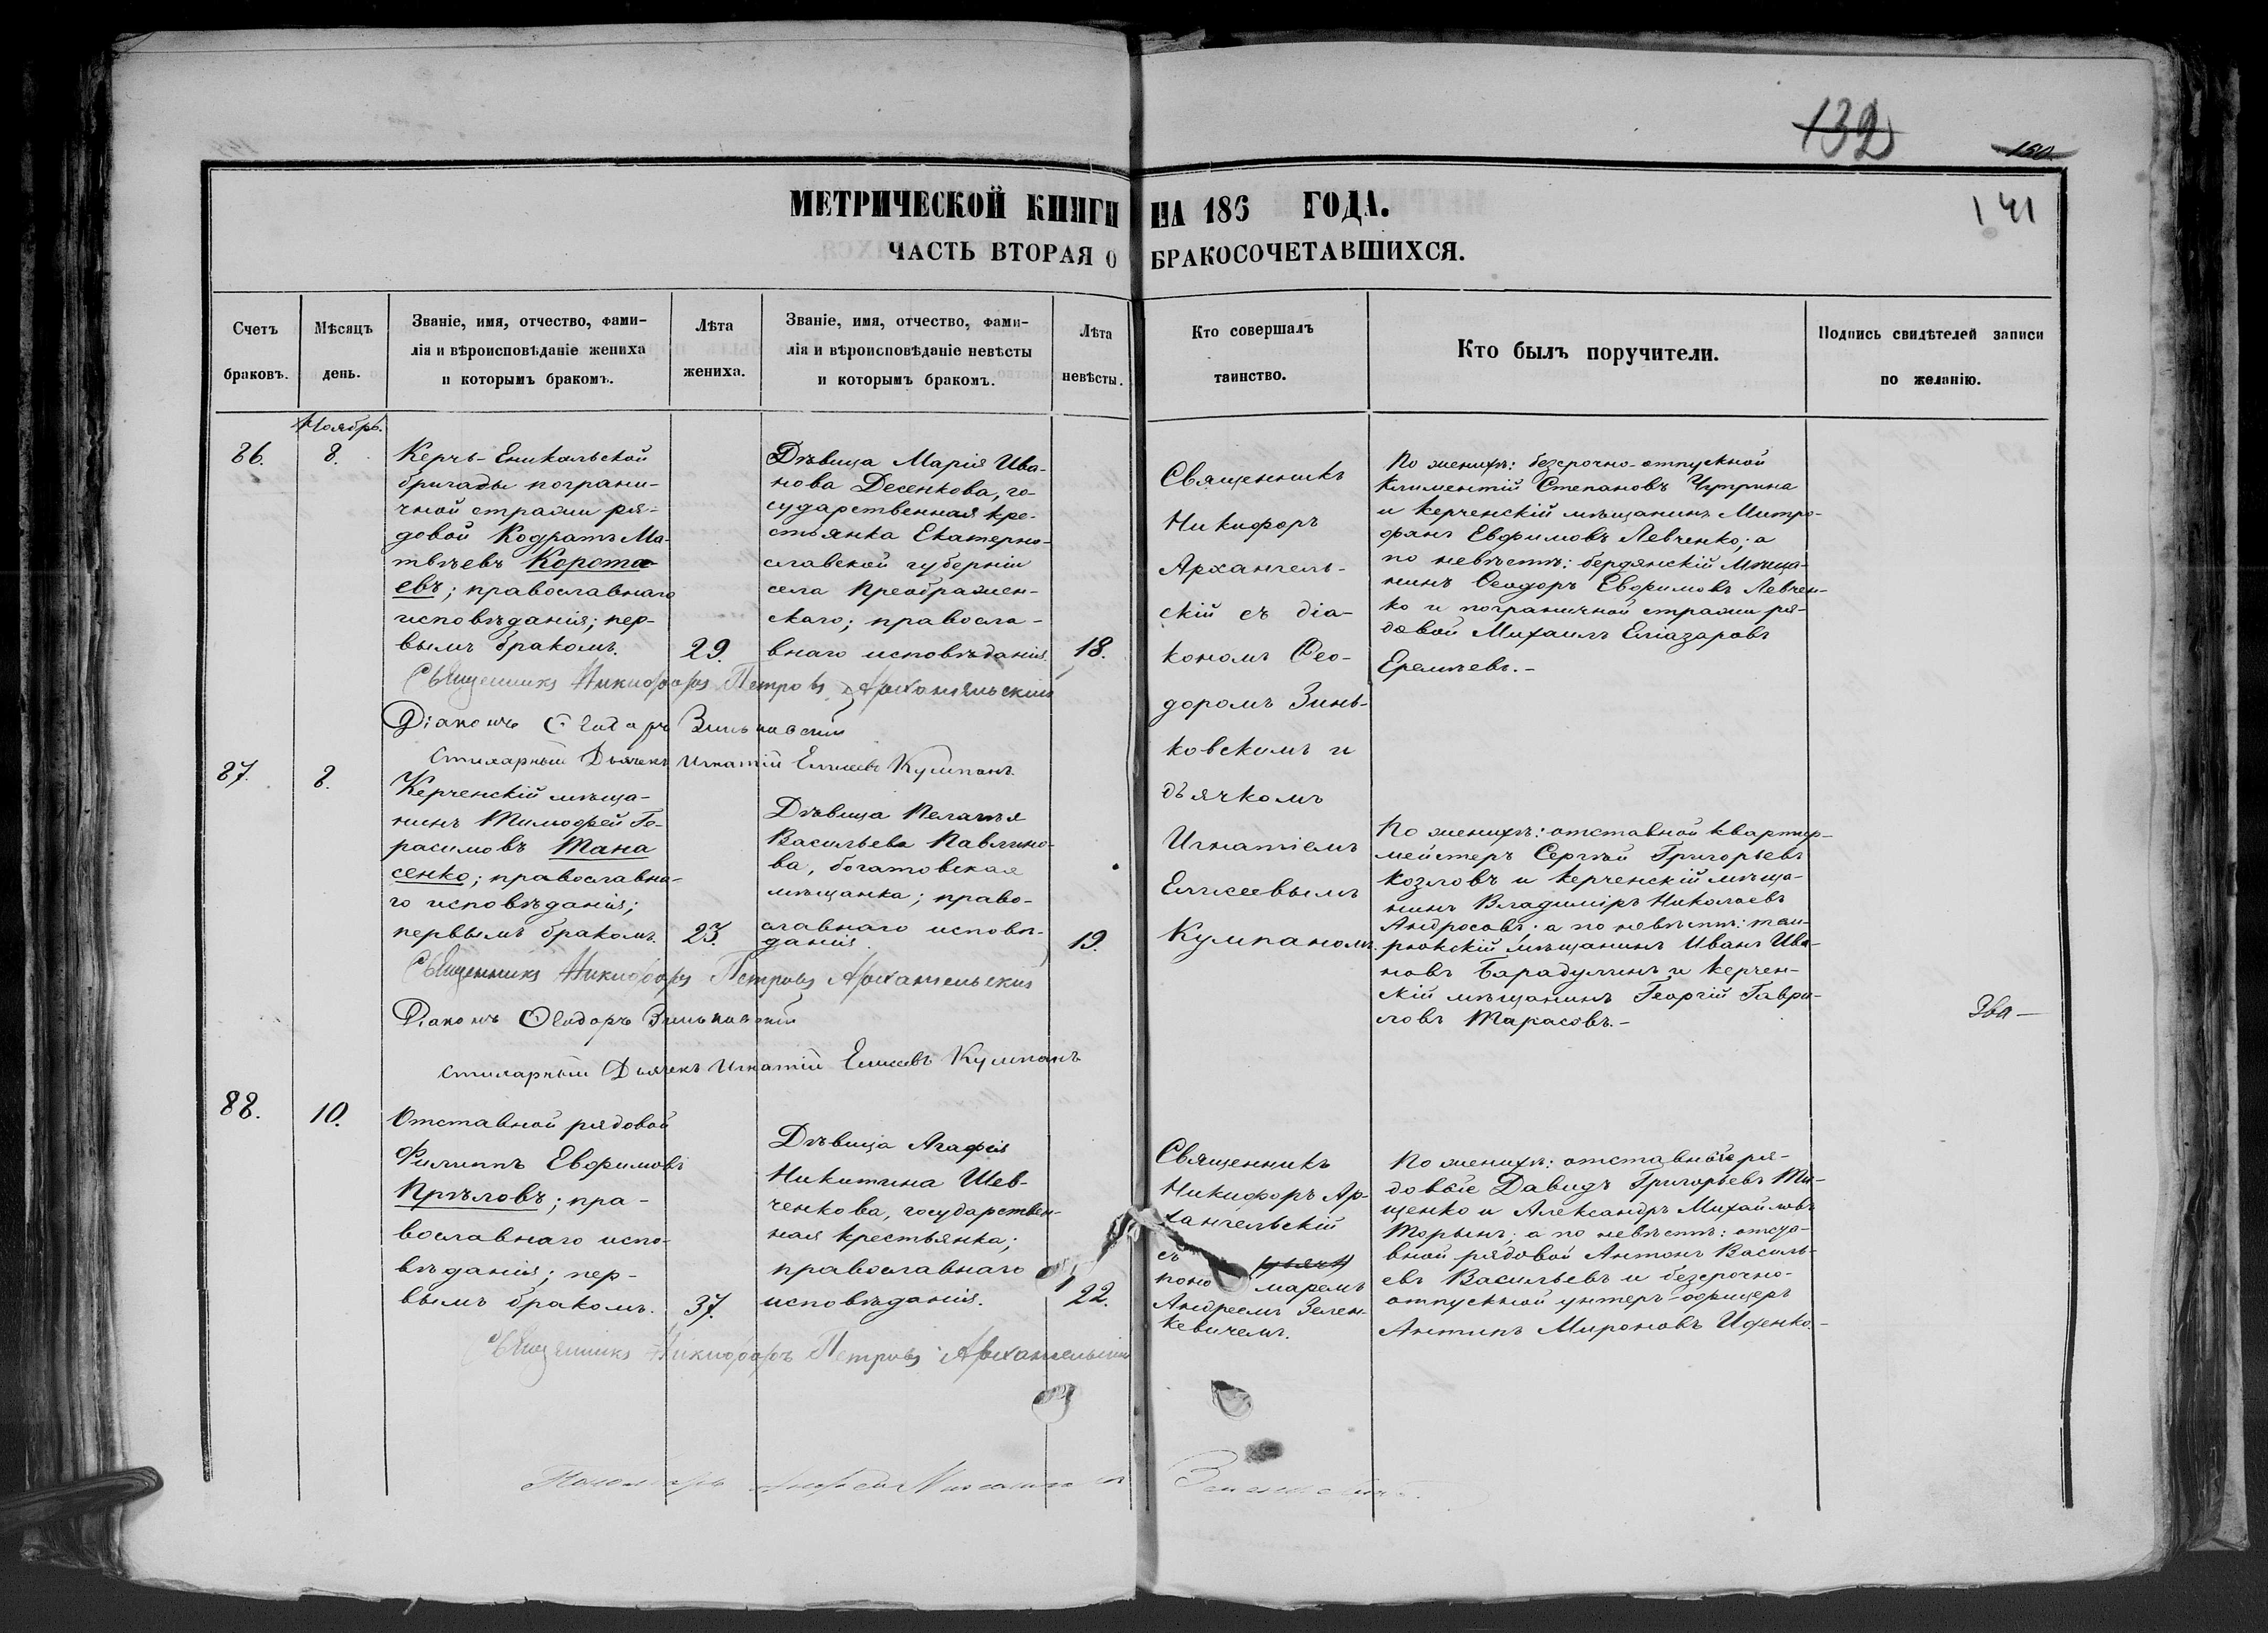 132
150
141
МЕТРИЧЕСКОЙ КНИГИ НА 186 ГОДА.
ЧАСТЬ ВТОРАЯ О БРАКОСОЧЕТАВШИХСЯ.
Счетъ
браковъ.
Мѣсяцъ
день.
Званіе, имя, отчество, фами-
лія и вѣроисповѣданіе жениха
и которымъ бракомъ.
Лѣта
жениха.
Званіе, имя, отчество, фами-
лія и вѣроисповѣданіе невѣсты
и которымъ бракомъ.
Лѣта
невѣсты.
Кто совершалъ
таинство.
Кто былъ поручители.
Подпись свидѣтелей записи
по желанію.
Ноябрь.
86.
8.
Керчь-Еникольской
бригады пограни-
чной стражи ря-
довой Кодратъ Ма-
твѣевъ Корота-
евъ; православнаго
исповѣданія; пер-
вымъ бракомъ.
29.
Дѣвица Марія Ива-
нова Десенкова, го-
сударственная кре-
стьянка Екатерино-
славской губерніи
села Преображен-
скаго; правосла-
внаго исповѣданія.
18.
Священникъ
Никифоръ
Архангель-
скій съ діа-
кономъ Ѳео-
доромъ Зинь-
ковскимъ и
дьячкомъ
Игнатіемъ
Елисеевымъ
Кулпаномъ.
По женихѣ: безсрочно-отпускной
Климентій Степановъ Чуприна
и керченскій мѣщанинъ Митро-
фанъ Евфимовъ Левченко; а
по невѣстѣ: бердянскій мѣща-
нинъ Ѳеодоръ Евфимовъ Левчен-
ко и пограничной стражи ря-
довой Михаилъ Еліазаровъ
Еремѣевъ.-
Священникъ Никифоръ Петровъ Архангельскій
Діаконъ Ѳеодоръ Зиньковскій
Стихарный Дьячекъ Игнатій Елисеевъ Кулпанъ.
87.
8.
Керченскій мѣща-
нинъ Тимофей Ге-
расимовъ Тана
сенко; православна-
го исповѣданія;
первымъ бракомъ.
23.
Дѣвица Пелагѣя
Васильева Павлино-
ва, богатовская
мѣщанка; право-
славнаго исповѣ-
данія.
19.
По женихѣ: отставной квартир-
мейстеръ Сергѣй Григорьевъ
Козловъ и керченскій мѣща-
нинъ Владиміръ Николаевъ
Андросовъ; а по невѣстѣ: тем-
рюкскій мѣщанинъ Иванъ Ива-
новъ Барадулинъ и керчен-
скій мѣщанинъ Георгій Гаври-
ловъ Тарасовъ.-
Священникъ Никифоръ Петровъ Архангельскій
Діаконъ Ѳеодоръ Зиньковскій
стихарный Дьячекъ Игнатій Елисеевъ Кулпанъ
88.
10.
Отставной рядовой
Филиппъ Евфимовъ
Прѣловъ; пра-
вославнаго испо-
вѣданія; пер-
вымъ бракомъ.
37.
Дѣвица Агафія
Никитина Шев-
ченкова, государствен-
ная крестьянка;
православнаго
исповѣданія.
22.
Священникъ
Никифоръ Ар-
хангельскій
съ
поно маремъ
Андреемъ Зелен-
кевичемъ.
По женихѣ: отставные ря-
довые Давидъ Григорьевъ Ти-
щенко и Александръ Михайловъ
Торынъ; а по невѣстѣ: отста-
вной рядовой Антонъ Василь-
евъ Васильевъ и безсрочно-
отпускной унтеръ-офицеръ
Антипъ Мироновъ Ищенко.-
Священникъ Никифоръ Петровъ Архангельскій
Пономарь Андрей